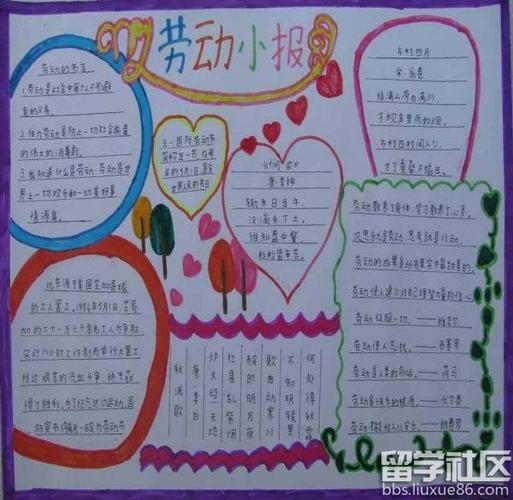 劳动小报
劳动的名言
1.劳动是社会中每个人不可避
免的义务。
2.体力劳动是防止一切社会病毒
的伟大的消毒剂。
3.我知道什么是劳动:劳动是世
界上一切欢乐和一切美好事
情源泉。
五一国际劳动节
简称五一节,在每
年的5月1日,是全
世界人民的节日
《悯农》
唐·李绅
锄禾日当午,
汗滴禾下土。
谁知盘中餐
粒粒皆辛苦。
乡村四月
宋·翁卷
绿满山原白满川,
子规声里雨如烟。
乡村四月闲人少,
才了蚕桑又插田。
此节源于美国芝加哥城
的工人罢工。1886年5月1日,芝加
哥的二十一万六千余名工人为争取
实行八小时工作制而举行大罢工
经过艰苦的流血斗争,终于获
得了胜利。为了纪念这次运动,国
定为劳动节
秋浦歌
唐·李白
炉火照天地
红星乱紫烟
赧郎明月夜
歌曲动寒川
不知明镜里
何处得秋霜
劳动教养了身体,学习教养了心灵。
沉思就是劳动,思考就是行动。
劳动的成果是所有果实中最甜美的。
劳动使人建立对自己理智力量的信心。
劳动征服一切。——维吉尔
劳动使人忘忧。——西塞罗
劳动是人类的命运。——荷马
劳动是快乐的根源。——伏尔泰
留学社区
bbs.liuxue86.com